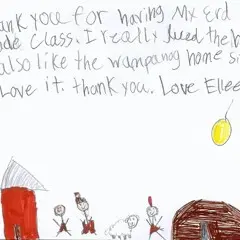 ank you for having Mx Erd
ade Class. I really liked the b
also like the wampanog home si
Love it. thank you. Love Ellee